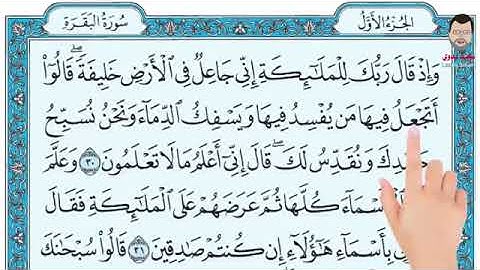 الجزء الأول
سورة البقرة
وَإِذْ قَالَ رَبُّكَ لِلْمَلَٰٓئِكَةِ إِنِّى جَاعِلٌ فِى ٱلْأَرْضِ خَلِيفَةً ۖ قَالُوٓا۟
أَتَجْعَلُ فِيهَا مَن يُفْسِدُ فِيهَا وَيَسْفِكُ ٱلدِّمَآءَ وَنَحْنُ نُسَبِّحُ
وَنُقَدِّسُ لَكَ ۖ قَالَ إِنِّىٓ أَعْلَمُ مَا لَا تَعْلَمُونَ ٣٠ وَعَلَّمَ
كُلَّهَا ثُمَّ عَرَضَهُمْ عَلَى ٱلْمَلَٰٓئِكَةِ فَقَالَ
بِأَسْمَآءِ هَٰٓؤُلَآءِ إِن كُنتُمْ صَٰدِقِينَ ٣١ قَالُوا۟ سُبْحَٰنَكَ